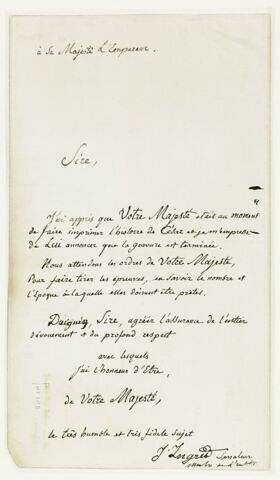 à Sa Majesté L'Empereur.
Sire,
J'ai appris que Votre Majesté était au moment
de faire imprimer l'histoire de César et je m'empresse
de Lui annoncer que la gravure est terminée.
Nous attendons les ordres de Votre Majesté,
Pour faire tirer les épreuves, en savoir le nombre et
l'époque à laquelle elles doivent être prêtes.
Daignez, Sire, agréer l'assurance de l'entier
dévouement et du profond respect
avec lesquels
j'ai l'honneur d'être,
de Votre Majesté,
le très humble et très fidèle sujet
J. Ingres
Sénateur
membre de l'